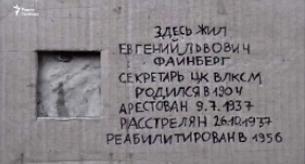 Радио
Свобода
ЗДЕСЬ ЖИЛ
ЕВГЕНИЙ ЛЬВОВИЧ
ФАЙНБЕРГ
СЕКРЕТАРЬ ЦК ВЛКСМ
РОДИЛСЯ В 1904
АРЕСТОВАН 9.7.1937
РАССТРЕЛЯН 26.10.1937
РЕАБИЛИТИРОВАН В 1956